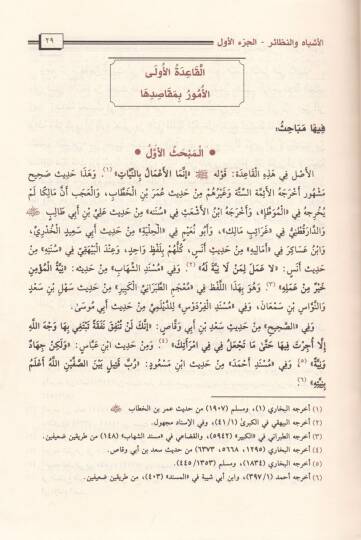 الأشباه والنظائر - الجزء الأول
٢٩
القَاعِدَةُ الأُولَى
الأُمُورُ بِمَقَاصِدِهَا
فِيهَا مَبَاحِثُ:
• المَبْحَثُ الأَوَّلُ •
الأَصْلُ فِي هَذِهِ القَاعِدَةِ: قَوْلُهُ ﷺ «إِنَّمَا الأَعْمَالُ بِالنِّيَّاتِ» (١). وَهَذَا حَدِيثٌ صَحِيحٌ
مَشْهُورٌ أَخْرَجَهُ الأَئِمَّةُ السِّتَّةُ وَغَيْرُهُمْ مِنْ حَدِيثِ عُمَرَ بْنِ الْخَطَّابِ، وَالعَجَبُ أَنَّ مَالِكًا لَمْ
يُخْرِجْهُ فِي «المُوَطَّإِ»، وَأَخْرَجَهُ ابْنُ الأَشْعَثِ فِي «سُنَنِهِ» مِنْ حَدِيثِ عَلِيِّ بْنِ أَبِي طَالِبٍ
وَالدَّارَقُطْنِيُّ فِي «غَرَائِبِ مَالِكٍ»، وَأَبُو نُعَيْمٍ فِي «الحِلْيَةِ» مِنْ حَدِيثِ أَبِي سَعِيدٍ الخُدْرِيِّ،
وَابْنُ عَسَاكِرَ فِي «أَمَالِيهِ» مِنْ حَدِيثِ أَنَسٍ، كُلُّهُمْ بِلَفْظٍ وَاحِدٍ، وَعِنْدَ البَيْهَقِيِّ فِي «سُنَنِهِ» مِنْ
حَدِيثِ أَنَسٍ: «لَا عَمَلَ لِمَنْ لَا نِيَّةَ لَهُ» (٢). وَفِي «مُسْنَدِ الشِّهَابِ» مِنْ حَدِيثِهِ: «نِيَّةُ المُؤْمِنِ
خَيْرٌ مِنْ عَمَلِهِ» (٣). وَهُوَ بِهَذَا اللَّفْظِ فِي «مُعْجَمِ الطَّبَرَانِيِّ الكَبِيرِ» مِنْ حَدِيثِ سَهْلِ بْنِ سَعْدٍ
وَالنَّوَّاسِ بْنِ سَمْعَانَ، وَفِي «مُسْنَدِ الفِرْدَوْسِ» لِلدَّيْلَمِيِّ مِنْ حَدِيثِ أَبِي مُوسَىٰ.
وَفِي «الصَّحِيحِ» مِنْ حَدِيثِ سَعْدِ بْنِ أَبِي وَقَّاصٍ: «إِنَّكَ لَنْ تُنْفِقَ نَفَقَةً تَبْتَغِي بِهَا وَجْهَ اللَّهِ
إِلَّا أُجِرْتَ فِيهَا حَتَّىٰ مَا تَجْعَلُ فِي فِي امْرَأَتِكَ» (٤). وَمِنْ حَدِيثِ ابْنِ عَبَّاسٍ: «وَلَكِنْ جِهَادٌ
وَنِيَّةٌ» (٥) وَفِي «مُسْنَدِ أَحْمَدَ» مِنْ حَدِيثِ ابْنِ مَسْعُودٍ: «رُبَّ قَتِيلٍ بَيْنَ الصَّفَّيْنِ اللَّهُ أَعْلَمُ
بِنِيَّتِهِ» (٦)
(١) أخرجه البخاري (١)، ومسلم (١٩٠٧) من حديث عمر بن الخطاب
(٢) أخرجه البيهقي في الكبرىٰ (٤١/١)، وفي الإسناد مجهول.
(٣) أخرجه الطبراني في «الكبير» (٥٩٤٢)، والقضاعي في «مسند الشهاب» (١٤٨) من طريقين ضعيفين.
(٤) أخرجه البخاري (١٢٩٥، ٥٦٦٨، ٦٣٧٣) من حديث سعد بن أبي وقاص.
(٥) أخرجه البخاري (١٨٣٤)، ومسلم (٤٤٥/١٣٥٣)
(٦) أخرجه أحمد (٣٩٧/١)، وابن أبي شيبة في «المسند» (٤٠٣)، من طريقين ضعيفين.